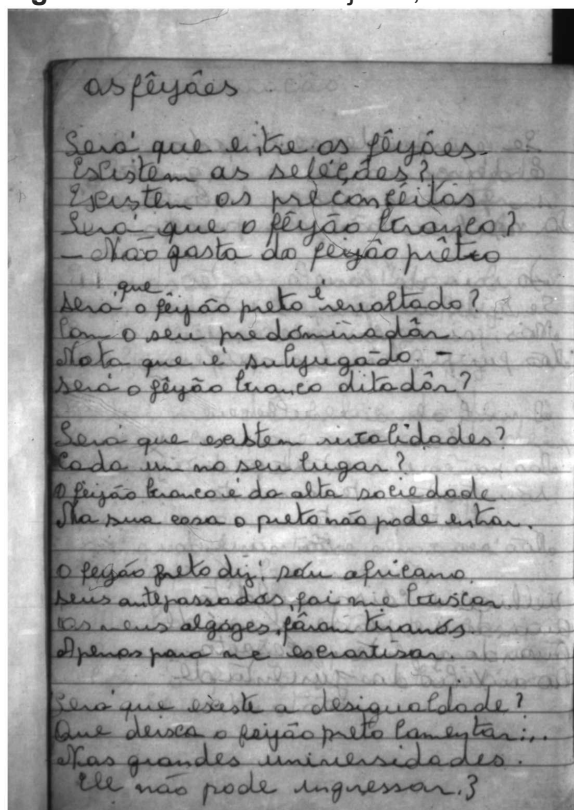 os fêijães
Será que entre os fêijães.
Existem as seleções?
Existem os preconçêitos
Será que o fêijão branco?
- Não gosta do feijão prêtro
será que o feijão preto é revoltado?
Com o seu predominadôr
Nota que é subjugado -
será o fêijão branco ditadôr?
Será que existem rivalidades?
Cada um no seu lugar?
O feijão branco é da alta sociedade
Na sua casa o preto não pode entrar.
O feijão preto diz: sou africano.
seus antepassados, foi me buscar.
Os meus algozes, fôram tiranos.
Apenas para me escravisar.
Será que existe a desigualdade?
Que deixa o feijão preto lamentar:..
Nas grandes universidades.
Ele não pode ingressar.3